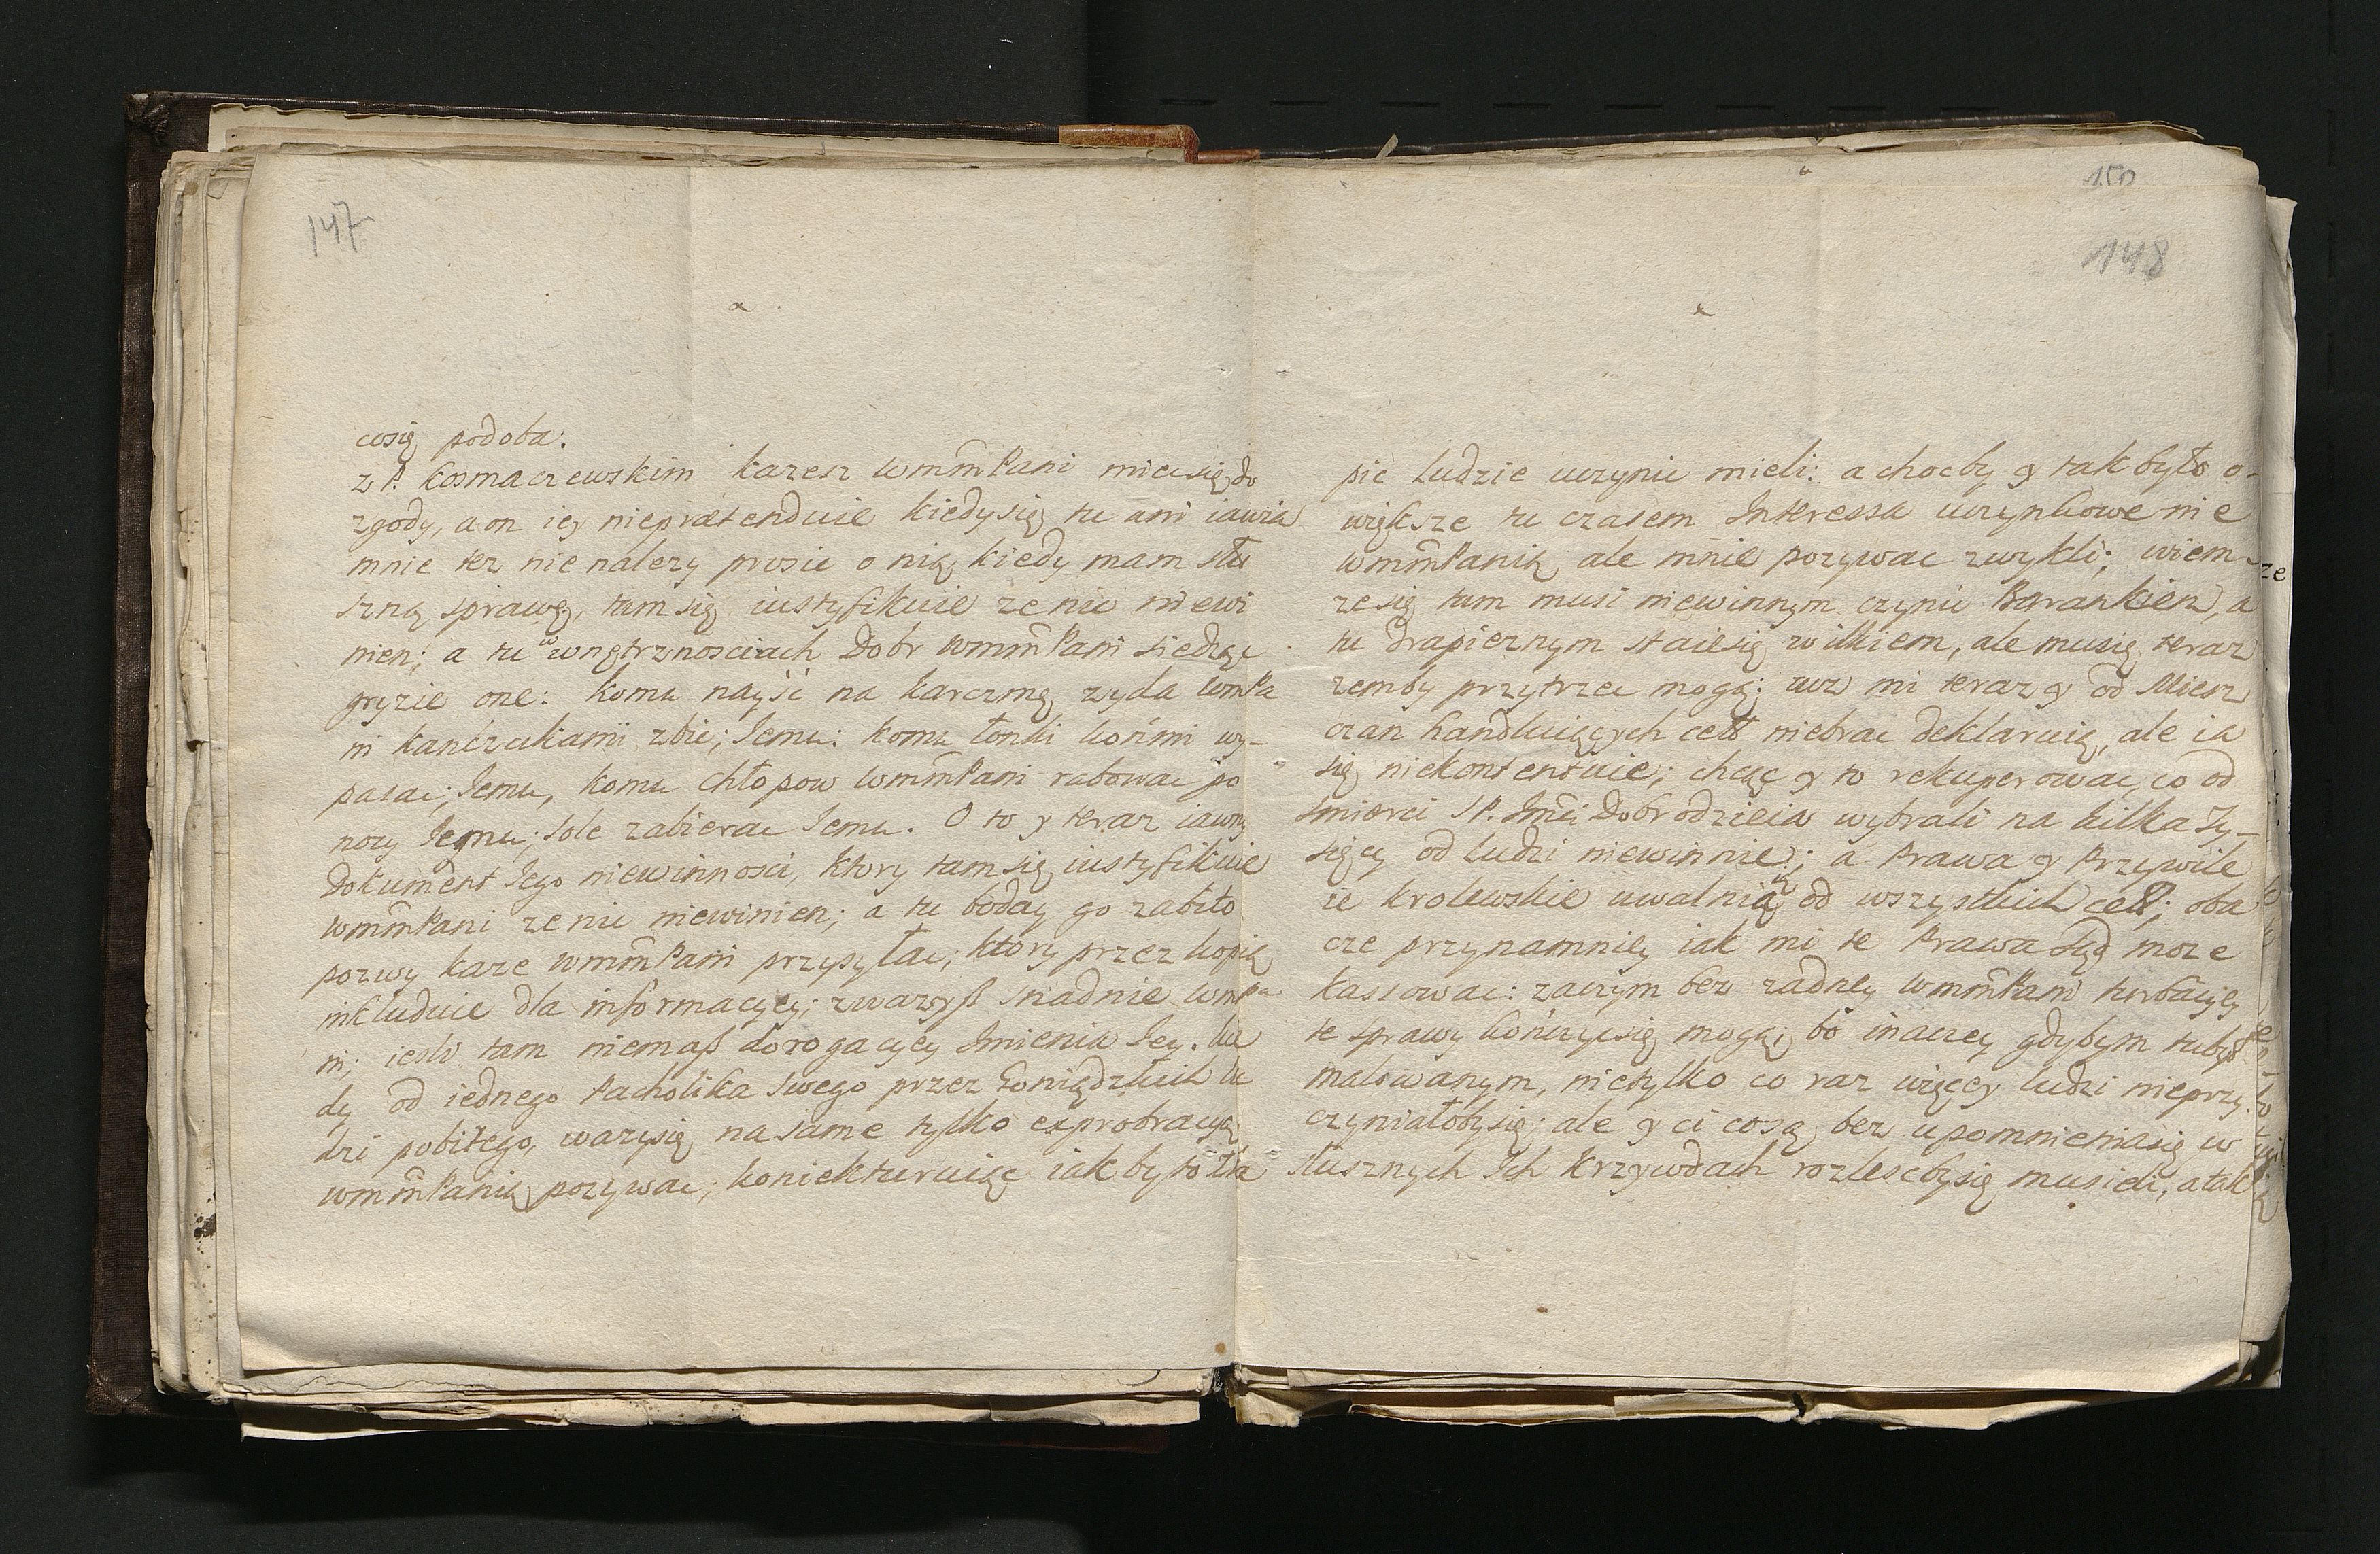 147
cosię podoba.
z P. Kosmaczewskim kazesz WmmPani miec się do
zgody, a on iey nieprætenduie kiedy się tu ani iawia
mnie tez nie nalezy prosic o nię, kiedy mam słu
szną sprawę, tam się iustyfikuie ze nic niewi
nien; a tu w wnętrznosciach Dobr WmmPani siedząc
gryzie one: komu nayść na karczmę zyda WmPa
ni kańczukami zbic; Jemu: komu łonki końmi wy-
pasac; Jemu, komu chłopow WmmPani rabowac po
nozy Jemu; sole zabierac Jemu. O to y teraz iawny
Dokument Jego niewinnosci, ktory tam się iustyfikuie
WmmPani ze nic niewinien; a tu boday go zabito
pozwy kaze WmmPani przysyłac; ktory przez kopię
inkluduie dla informacyey; zwazyß snadnie WmPa
ni; iesli tam niemaß dorogacyey Imienia Jey. kie
dy od iednego Pacholika swego przez Goniądzkich lu
dzi pobitego, wazysię na same tylko exprobracyą
WmmPanią pozywac; koniekturuiąc iak by to Zła
150
148
pic ludzie uczynic mieli: a chocby y tak było o-
większe tu czasem Interessa uczynkowe nie
WmmPanią ale mnie pozywac zwykli; wiem
ze się tam musi niewinnym czynic Barankiem, a
tu drapieznym staie się wilkiem, ale musię teraz
zemby przytrzec mogą: iuz mi teraz y od Miesz
czan handluiących cełł niebrac deklaruią, ale ia
się niekontentuie; chcąc y to rekuperowac, co od
smierci SP. Jmci Dobrodzieia wybrali na kilka Ty-
sięcy od ludzi niewinnie; a Prawa y Przywile
ie krolewskie uwalniaią od wszystkich cełł; oba
cze przynamniey iak mi te Prawa Sąd moze
kassowac: zaczym bez zadney WmmPani turbacyey
te sprawy kończyc się mogą, bo inaczey gdybym tu był
malowanym, nie tylko co raz więcey ludzi nieprzy-
czyniałoby się; ale y ci co są, bez upomnienia się w
słusznych Jch Krzywdach rozlescby się musieli, a tak
ze